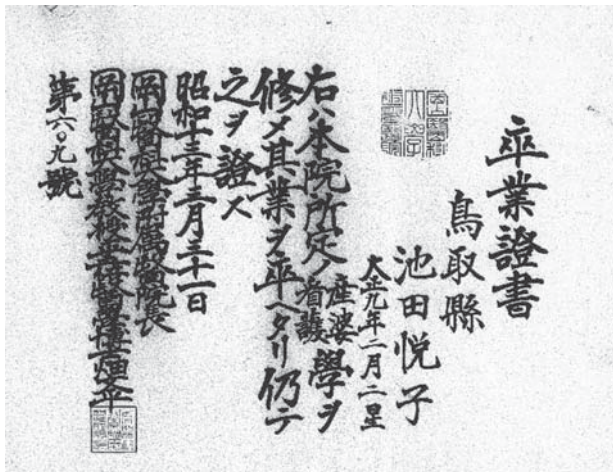 卒業證書
鳥取縣
池田悦子
大正九年二月二日生
右ハ本院所定ノ産婆看護學ヲ
修メ其業ヲ卒ヘタリ仍テ
之ヲ證ス
昭和十三年三月三十一日
岡山醫科大學附属醫院長
岡山醫科大學教授醫學博士畑文平
第六〇九號